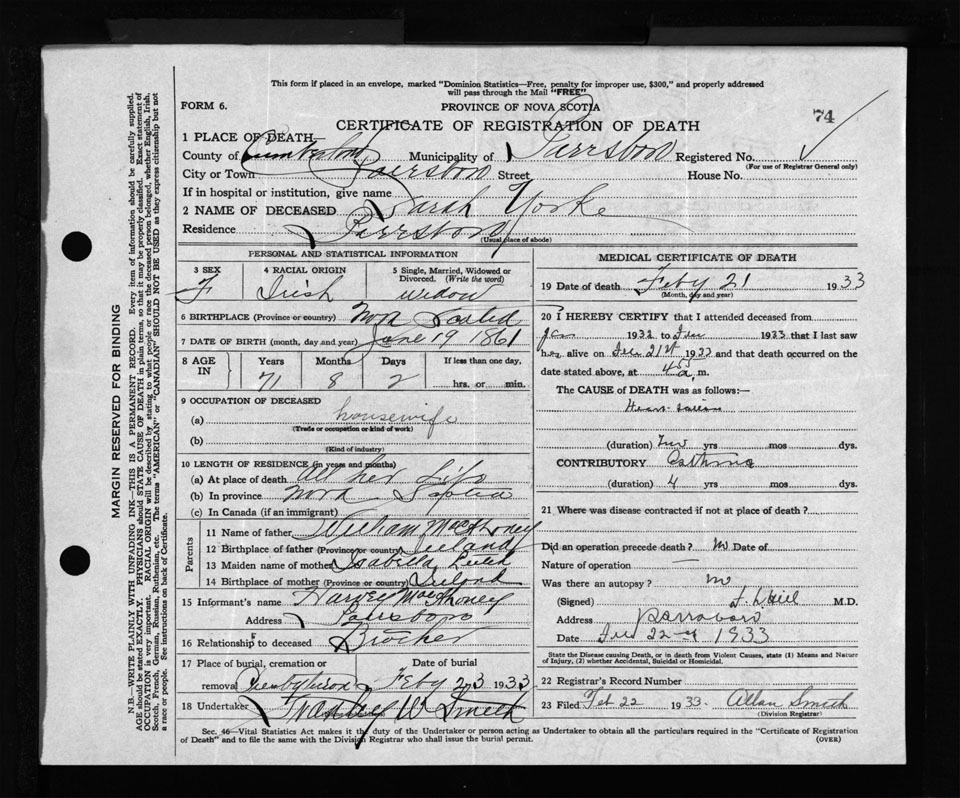 This form if placed in an envelope, marked "Dominion Statistics—Free, penalty for improper use, $300," and properly addressed
will pass through the Mail "FREE"
FORM 6.
PROVINCE OF NOVA SCOTIA
74
CERTIFICATE OF REGISTRATION OF DEATH
1 PLACE OF DEATH
County of Cumberland Municipality of Parrsboro Registered No.
(For use of Registrar General only)
City or Town Parrsboro Street House No.
If in hospital or institution, give name
2 NAME OF DECEASED Sarah Yorke
Residence Parrsboro
(Usual place of abode)
PERSONAL AND STATISTICAL INFORMATION
3 SEX F
4 RACIAL ORIGIN Irish
5 Single, Married, Widowed or Divorced. (Write the word) widow
6 BIRTHPLACE (Province or country) Nova Scotia
7 DATE OF BIRTH (month, day and year) June 19 1861
8 AGE IN Years 71 Months 8 Days 2 If less than one day, hrs. or min.
9 OCCUPATION OF DECEASED
(a) housewife
(Trade or occupation or kind of work)
(b)
(Kind of industry)
10 LENGTH OF RESIDENCE (in years and months)
(a) At place of death all her Life
(b) In province Nova Scotia
(c) In Canada (if an immigrant)
Parents
11 Name of father William
12 Birthplace of father (Province or country) Ireland
13 Maiden name of mother Isabella
14 Birthplace of mother (Province or country) Ireland
15 Informant's name Harvey
Address Parrsboro
16 Relationship to deceased Brother
17 Place of burial, cremation or removal Date of burial Feby 23 1933
18 Undertaker W Smith
MEDICAL CERTIFICATE OF DEATH
19 Date of death Feby 21 1933
(Month, day and year)
20 I HEREBY CERTIFY that I attended deceased from
Jan 1932 to 1933 that I last saw
her alive on 21st and that death occurred on the
date stated above, at a.m.
The CAUSE of DEATH was as follows:—
Heart
(duration) yrs mos dys.
CONTRIBUTORY Asthma
(duration) 4 yrs mos dys.
21 Where was disease contracted if not at place of death?
Did an operation precede death? no Date of
Nature of operation —
Was there an autopsy? no
(Signed) M.D.
Address Parrsboro
Date 22 1933
State the Disease causing Death, or in death from Violent Causes, state (1) Means and Nature
of Injury, (2) whether Accidental, Suicidal or Homicidal.
22 Registrar's Record Number
23 Filed Feb 22 1933. Allan Smith
(Division Registrar)
Sec. 46—Vital Statistics Act makes it the duty of the Undertaker or person acting as Undertaker to obtain all the particulars required in the "Certificate of Registration
of Death" and to file the same with the Division Registrar who shall issue the burial permit.
(OVER)
MARGIN RESERVED FOR BINDING
N.B.—WRITE PLAINLY WITH UNFADING INK—THIS IS A PERMANENT RECORD. Every item of information should be carefully supplied.
AGE should be stated EXACTLY. PHYSICIANS should STATE CAUSE OF DEATH in plain terms, so that it may be properly classified. Exact statement of
OCCUPATION is very important. RACIAL ORIGIN will be described by stating to what people or race the deceased person belonged, whether English, Irish,
Scotch, French, German, Russian, Ruthenian, etc. The terms "AMERICAN" or "CANADIAN" SHOULD NOT BE USED as they express citizenship but not
a race or people. See instructions on back of Certificate.